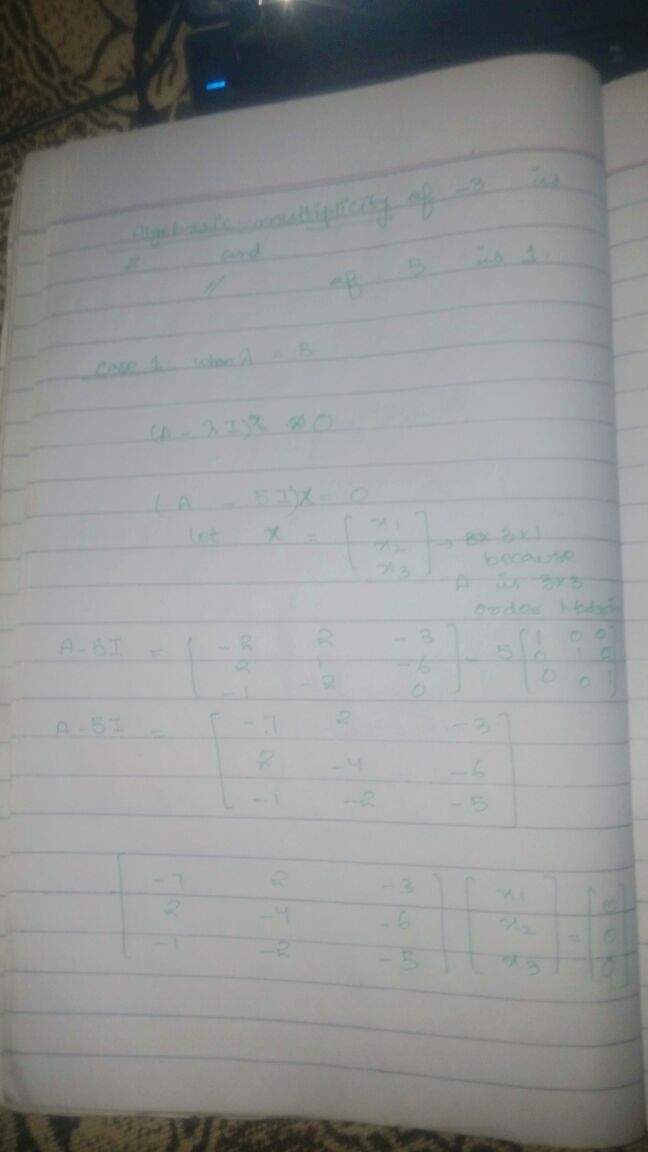 Algebraic multiplicity of -3 is
2 and
〃 of 5 is 1.
Case 1 when λ = 5
(A - λI)x = 0
(A - 5I)x = 0
let x = [x1 x2 x3] → 3x1
because
A is 3x3
order Matrix
A-5I = [-2 2 -3; 2 1 -6; -1 -2 0] - 5[1 0 0; 0 1 0; 0 0 1]
A-5I = [-7 2 -3; 2 -4 -6; -1 -2 -5]
[-7 2 -3; 2 -4 -6; -1 -2 -5] [x1 x2 x3] = [0 0 0]